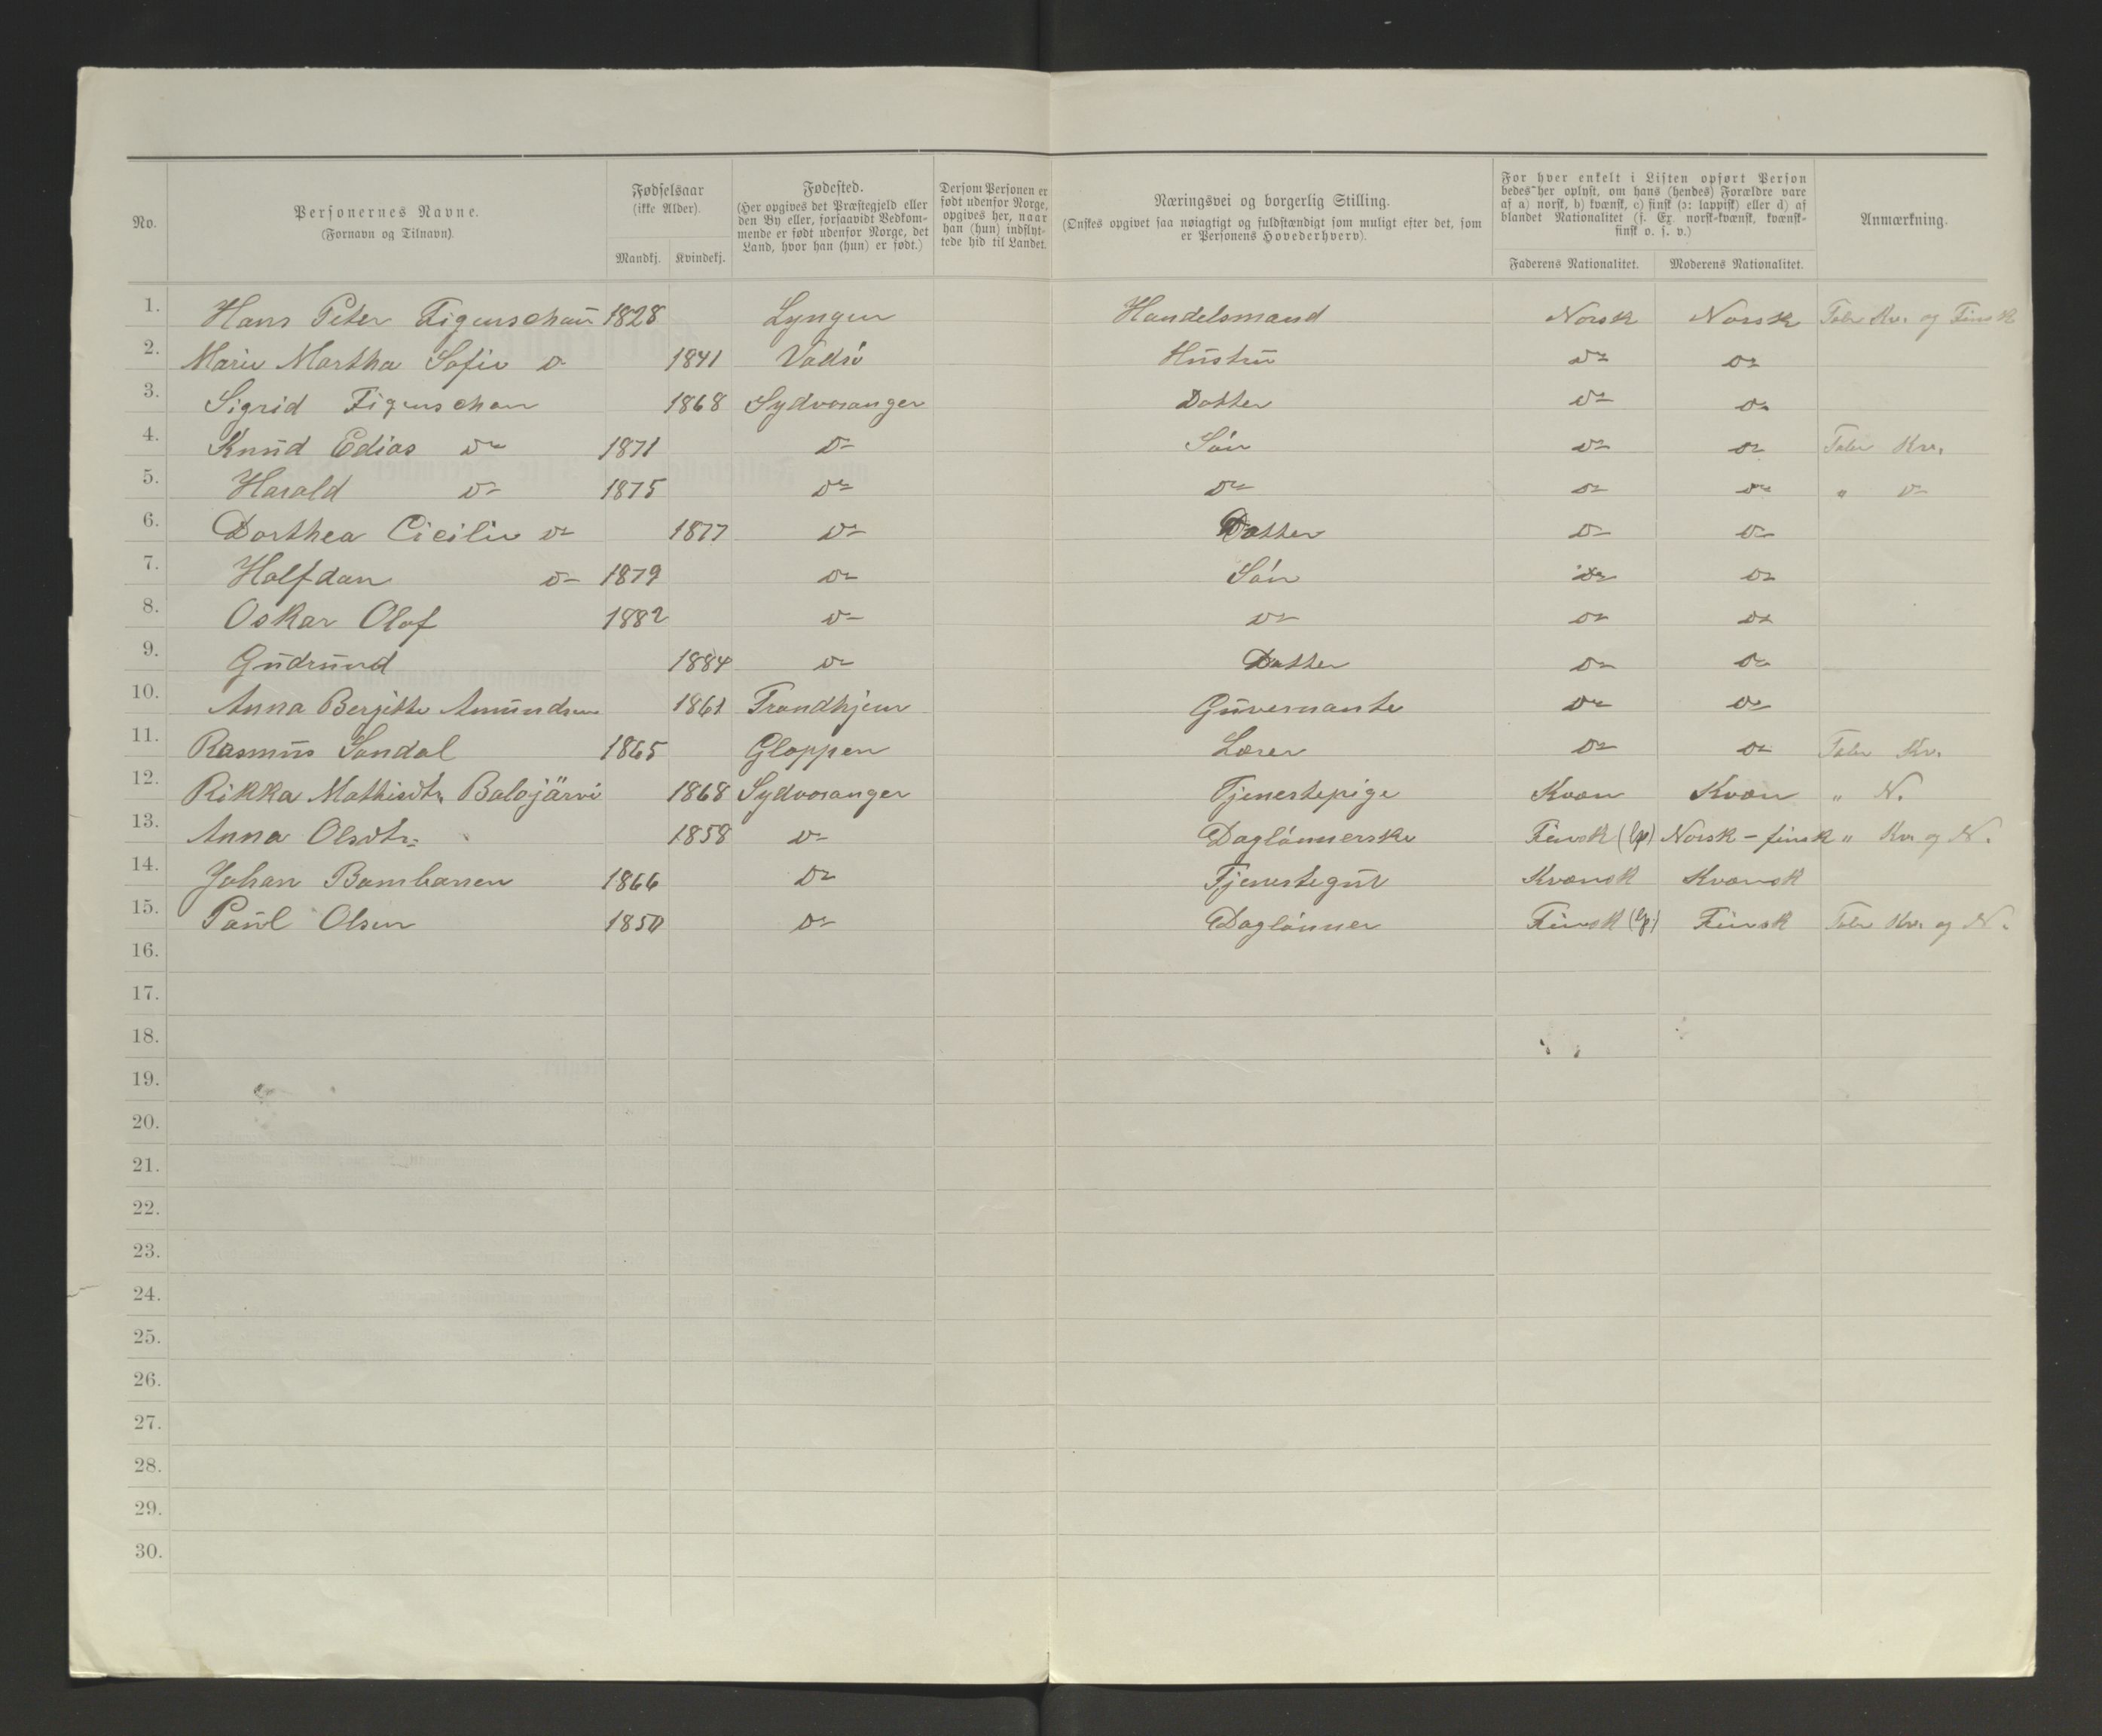 No.
Personernes Navne.
(Fornavn og Tilnavn).
Fødselsaar
(ikke Alder).
Mandkj. Kvindekj.
Fødested.
(Her opgives det Præstegjeld eller
den By eller, forsaavidt Vedkom-
mende er født udenfor Norge, det
Land, hvor han (hun) er født.)
Dersom Personen er
født udenfor Norge,
opgives her, naar
han (hun) indflyt-
tede hid til Landet.
Næringsvei og borgerlig Stilling.
(Ønskes opgivet saa nøiagtigt og fuldstændigt som muligt efter det, som
er Personens Hovederhverv).
For hver enkelt i Listen opført Person
bedes her oplyst, om hans (hendes) Forældre vare
af a) norsk, b) kvænsk, c) finsk (ɔ: lappisk) eller d) af
blandet Nationalitet (f. Ex. norsk-kvænsk, kvænsk-
finsk o. s. v.)
Faderens Nationalitet. Moderens Nationalitet.
Anmærkning.
1. Hans Peter Figenschau 1828 Lyngen Handelsmand Norsk Norsk Taler Kv. og Finsk
2. Marie Martha Sofie do 1841 Vadsö Hustru do do
3. Sigrid Figenschau 1868 Sydvaranger Datter do do
4. Knud Edias do 1871 do Sön do do Taler Kv.
5. Harald do 1875 do do do do " do
6. Dorthea Cicilie do 1877 do Datter do do
7. Halfdan do 1879 do Sön do do
8. Oskar Olaf 1882 do do do do
9. Gudrund 1884 do Datter do do
10. Anna Bergitte Amundsen 1861 Trondhjem Guvernante do do
11. Rasmus Sandal 1865 Gloppen Lærer do do Taler Kv.
12. Rikka Mathisdtr. Balojärvi 1868 Sydvaranger Tjenestepige Kvæn Kvæn " N.
13. Anna Olsdtr. 1858 do Daglönnerske Finsk (lp) Norsk-finsk " Kv. og N.
14. Johan Bambanen 1866 do Tjenestegut Kvænsk Kvænsk
15. Paul Olsen 1850 do Daglönner Finsk (lp) Finsk Taler Kv. og N.
16.
17.
18.
19.
20.
21.
22.
23.
24.
25.
26.
27.
28.
29.
30.